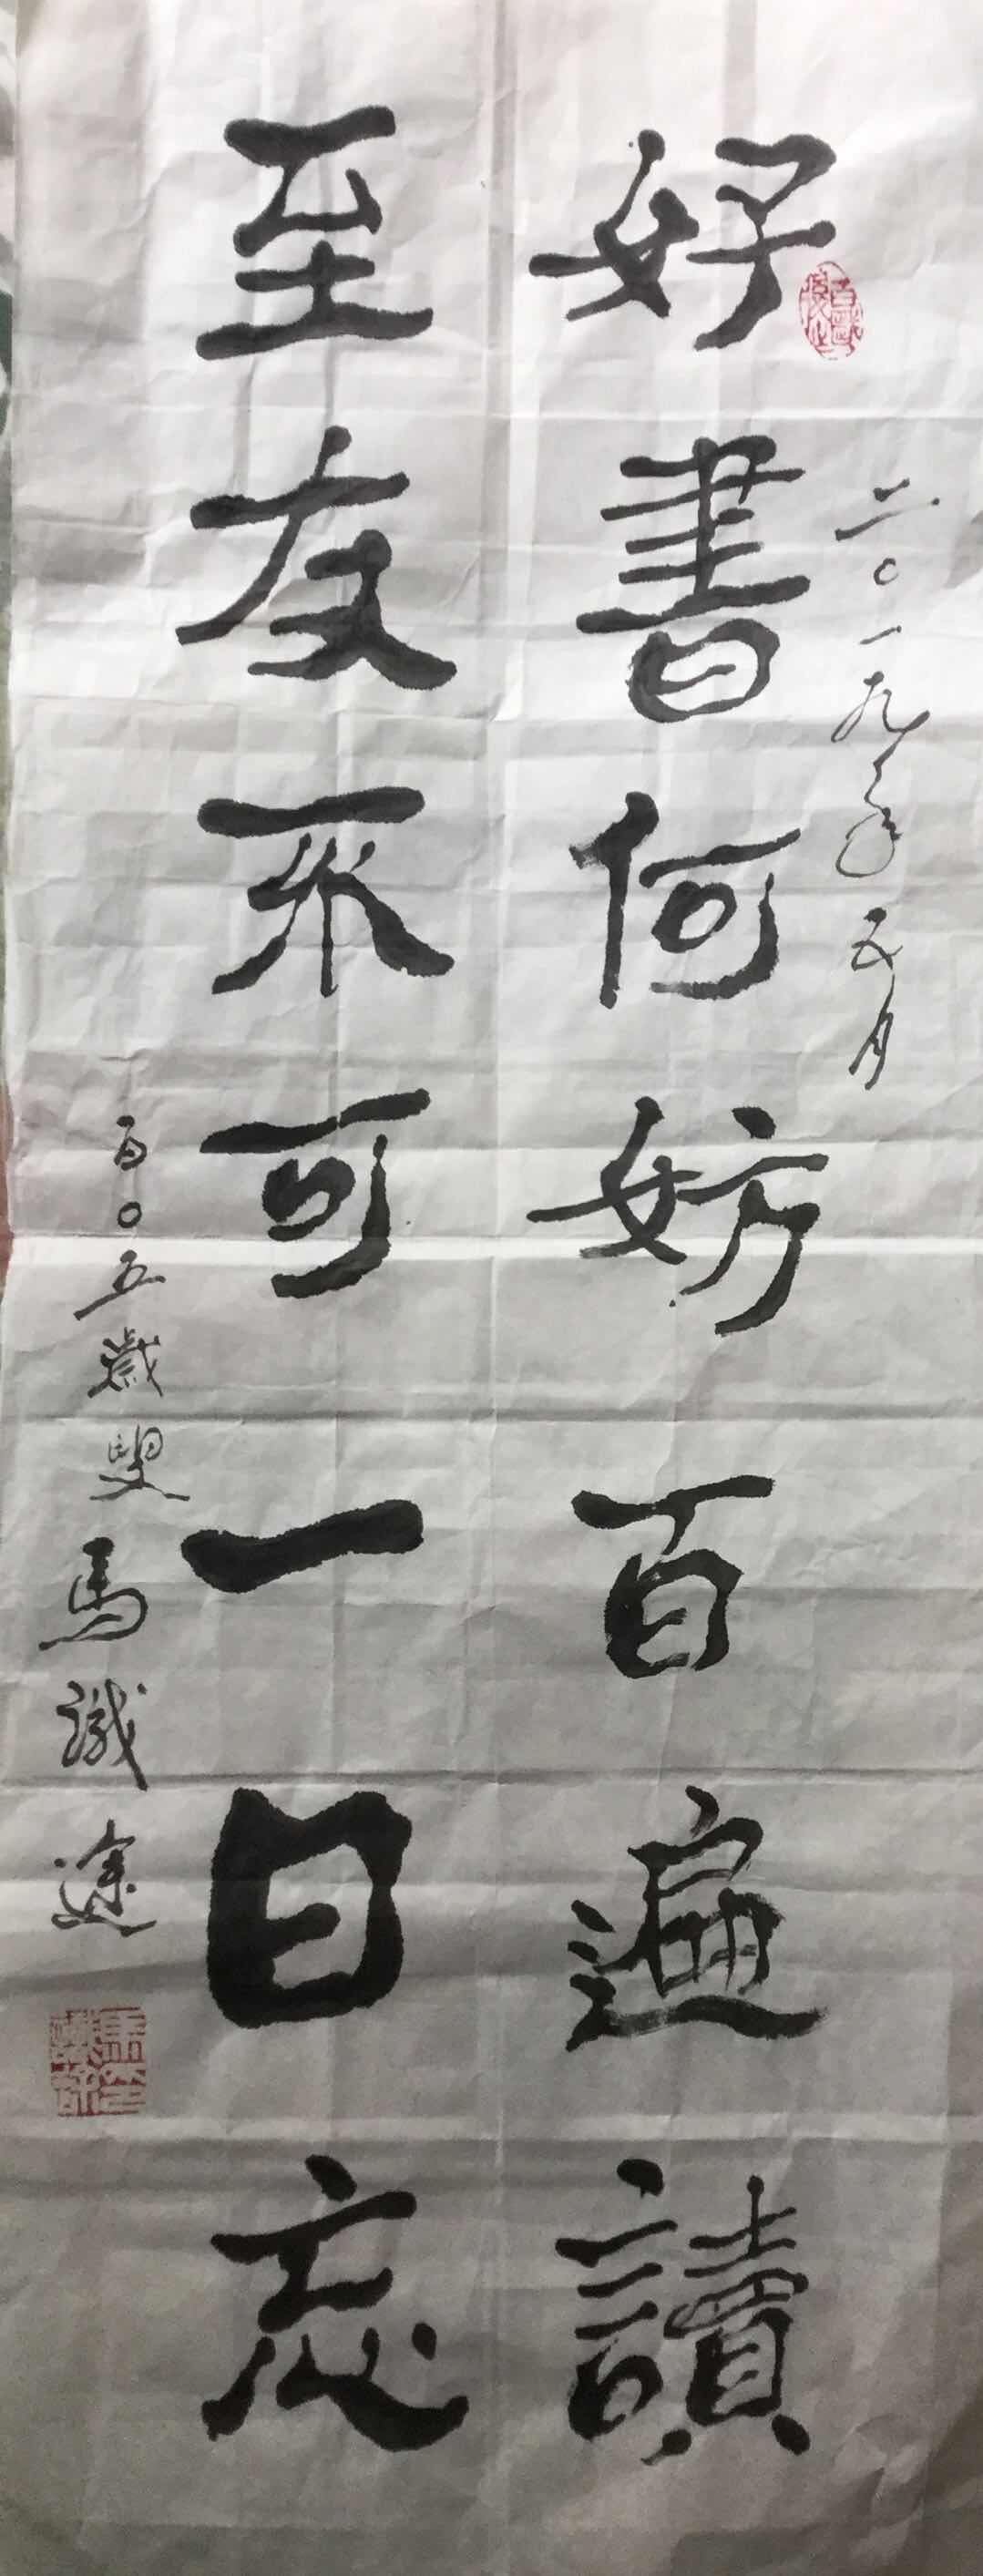 二〇一九年五月
好書何妨百遍讀
至友不可一日忘
百〇五歲叟馬識途